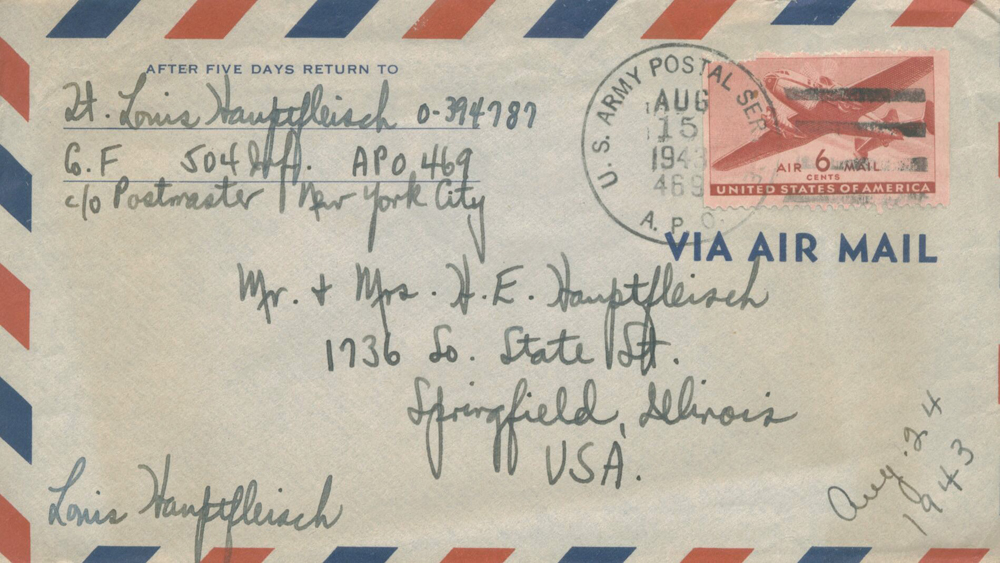 AFTER FIVE DAYS RETURN TO
Lt. Louis Hauptfleisch 0-394787
G.F 504 Inf. APO 469
c/o Postmaster New York City
U.S. ARMY POSTAL SER
AUG
15
1943
469
A.P.O.
AIR 6 MAIL
CENTS
UNITED STATES OF AMERICA
VIA AIR MAIL
Mr. + Mrs. H.E. Hauptfleisch
1736 So. State St.
Springfield, Illinois
USA.
Louis Hauptfleisch
Aug. 24
1943